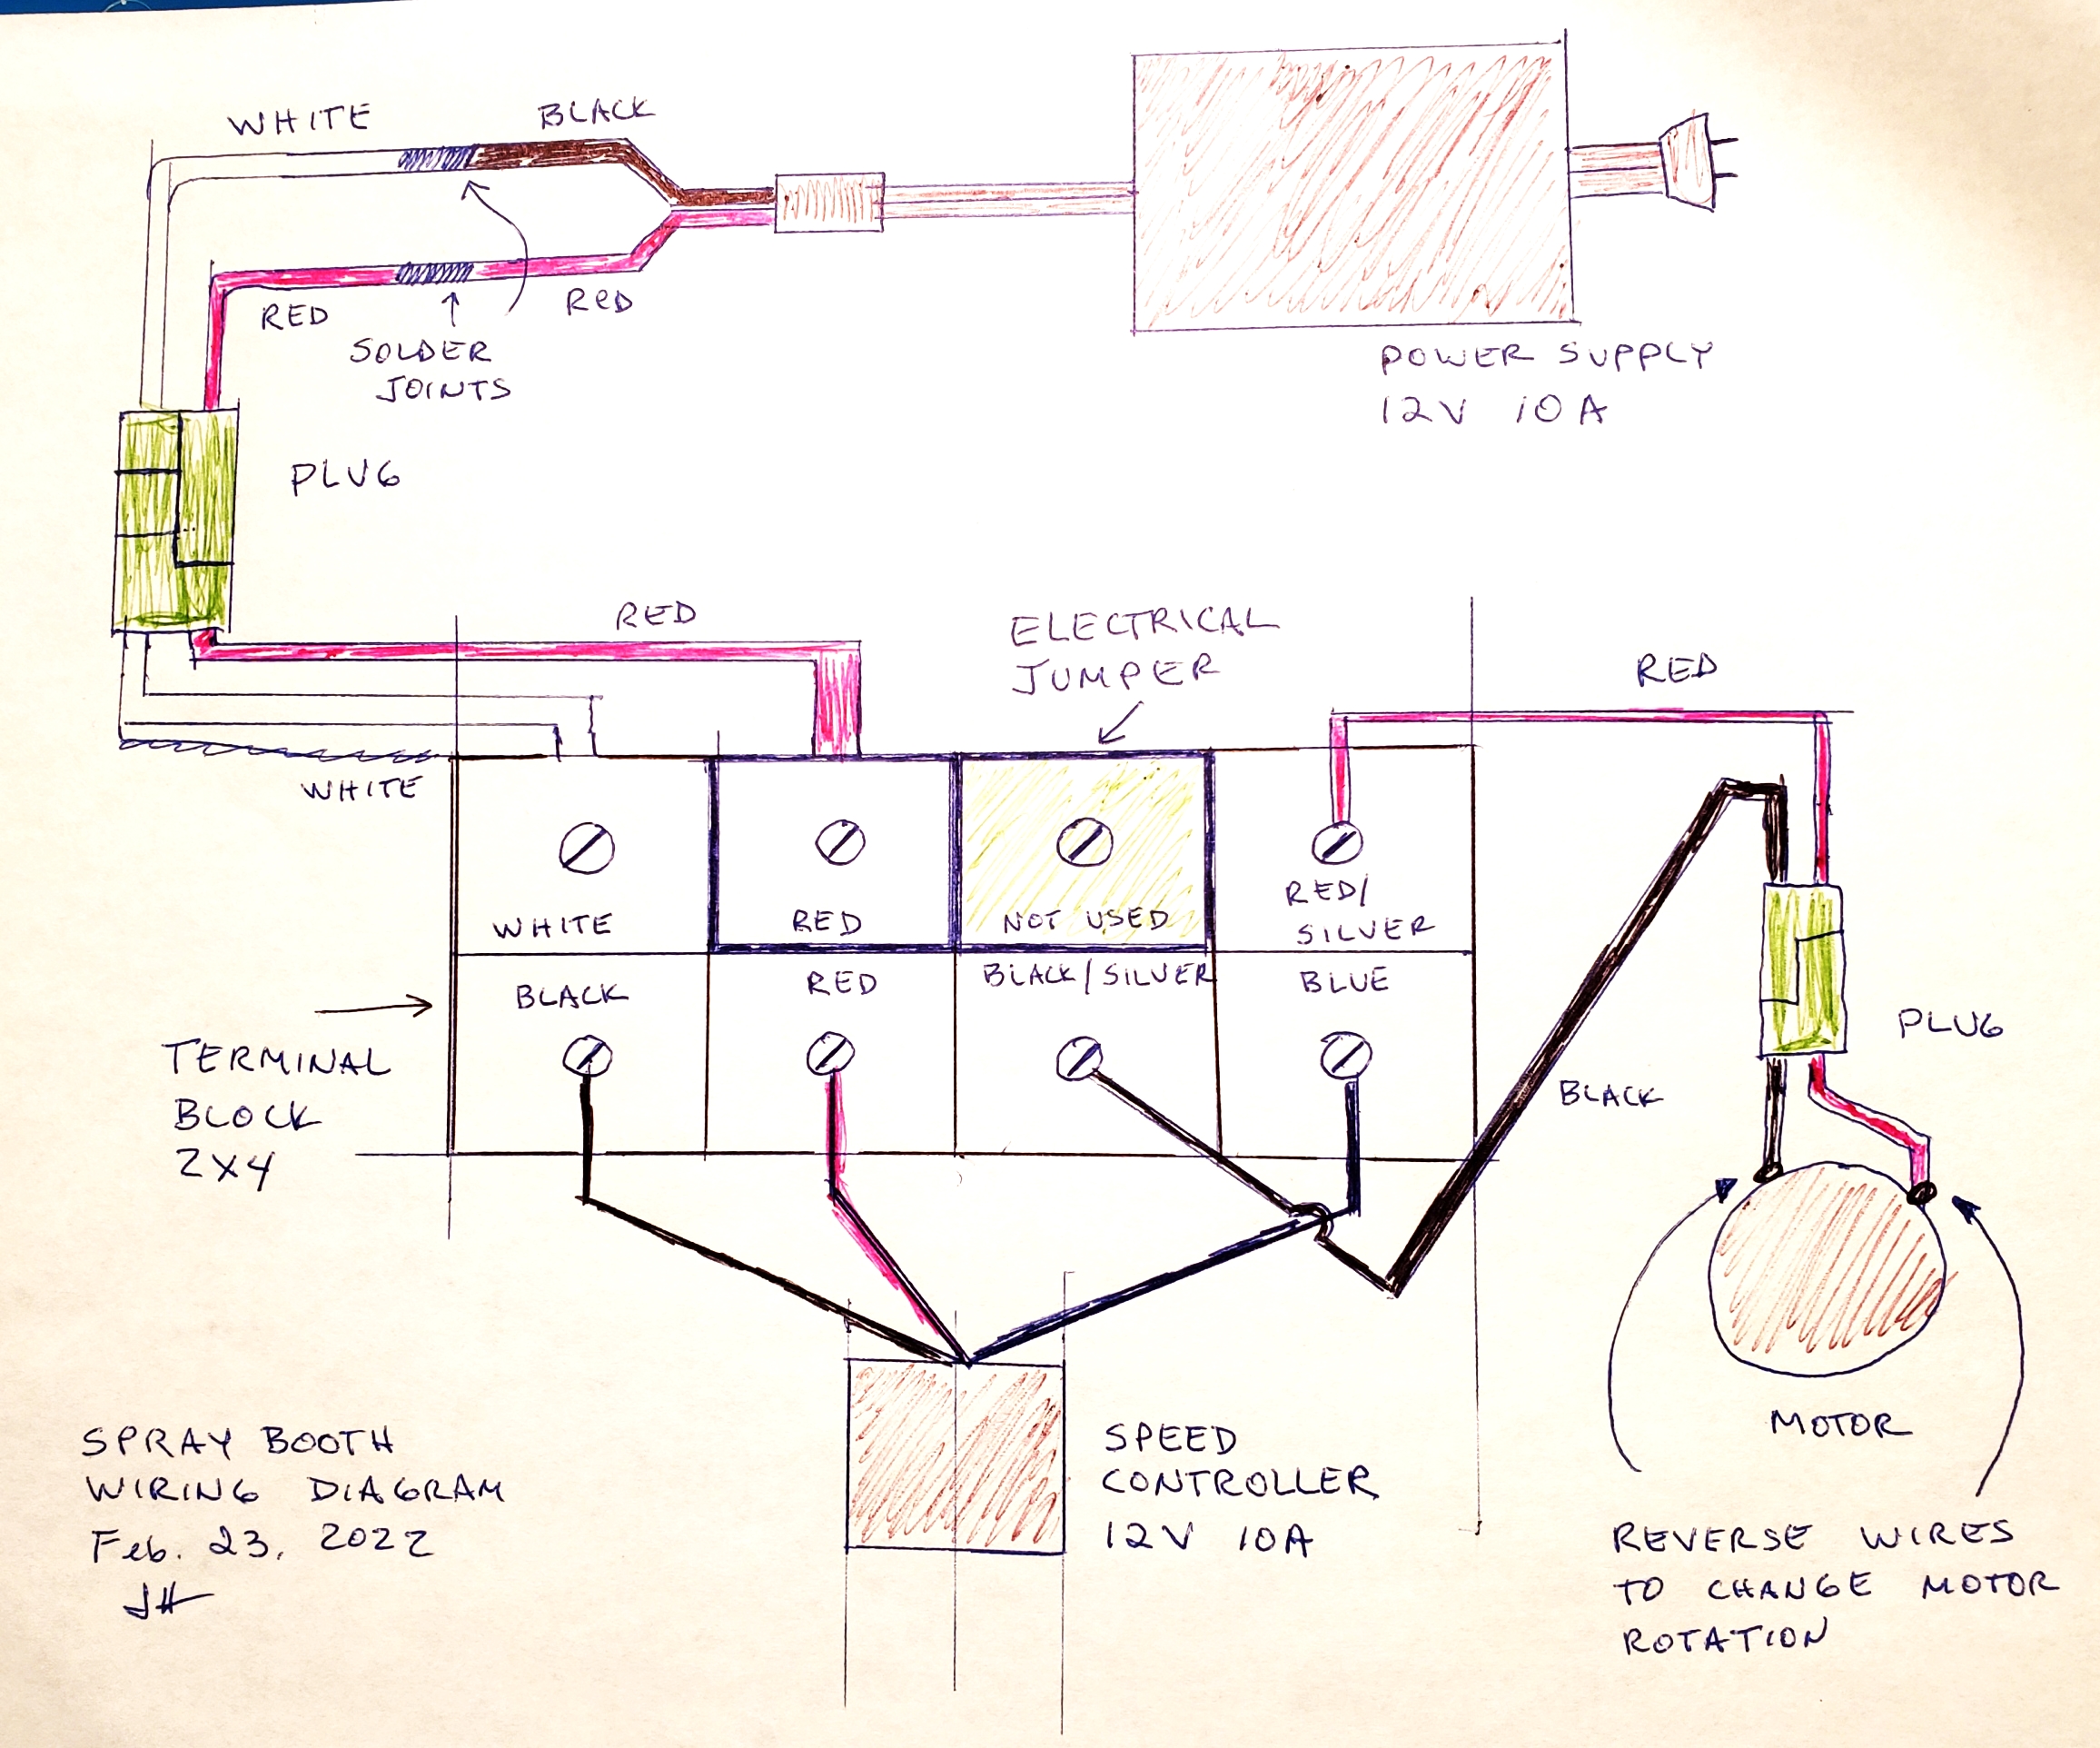 WHITE
BLACK
RED
RED
SOLDER
JOINTS
POWER SUPPLY
12V 10A
PLUG
RED
ELECTRICAL
JUMPER
RED
WHITE
WHITE
RED
NOT USED
RED/
SILVER
BLACK
RED
BLACK/SILVER
BLUE
TERMINAL
BLOCK
2X4
BLACK
PLUG
MOTOR
SPEED
CONTROLLER
12V 10A
REVERSE WIRES
TO CHANGE MOTOR
ROTATION
SPRAY BOOTH
WIRING DIAGRAM
Feb. 23, 2022
JH